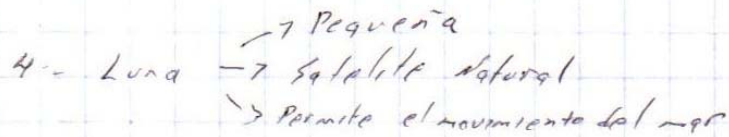 → Pequeña
4.- Luna → Satelite Natural
→ Permite el movimiento del mar